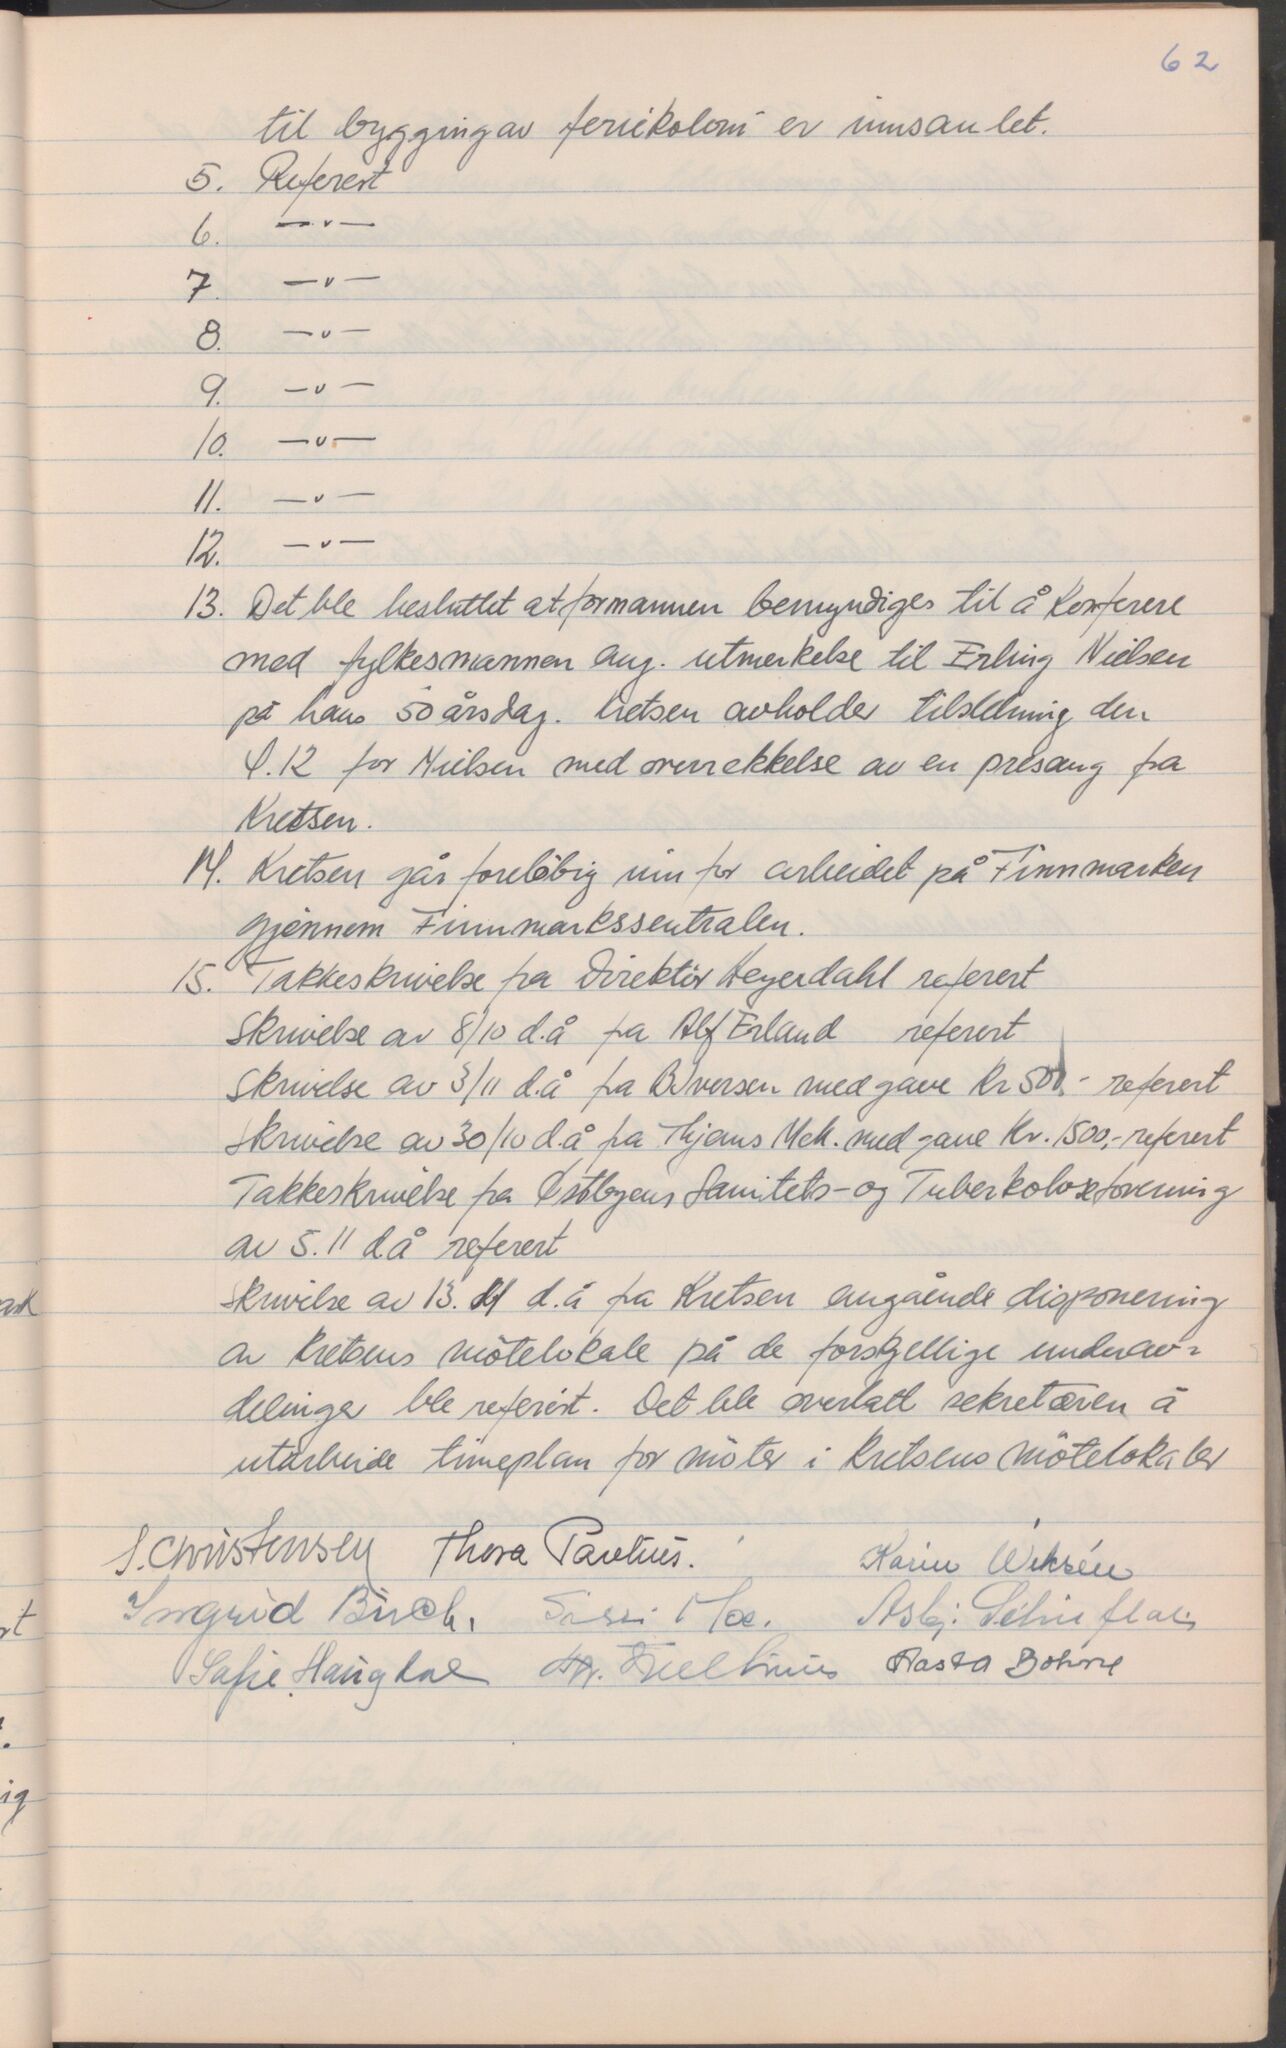 62
til bygging av feriekoloni er innsamlet.
5. Referert
6. —"—
7. —"—
8. —"—
9. —"—
10. —"—
11. —"—
12. —"—
13. Det ble besluttet at formannen bemyndiges til å konferere
med fylkesmannen ang. utmerkelse til Erling Nielsen
på hans 50 årsdag. Kretsen avholder tilstelning den
9.12 for Nielsen med overrekkelse av en presang fra
Kretsen.
14. Kretsen går foreløbig inn for arbeidet på Finnmarken
gjennem Finnmarkssentralen.
15. Takkeskrivelse fra Direktør Heyerdahl referert
Skrivelse av 8/10 d.å fra Alf Erland referert
Skrivelse av 3/11 d.å fra B Iversen med gave Kr 500,- referert
Skrivelse av 30/10 d.å fra Mek. med gave Kr. 1500,- referert
Takkeskrivelse fra Østbyens Sanitets- og Tuberkoloseforening
av 5.11 d.å referert
Skrivelse av 13.11 d.å fra Kretsen angående disponering
av Kretsens møtelokale på de forskjellige underav=
delinger ble referert. Det ble overlatt sekretæren å
utarbeide timeplan for møter i Kretsens møtelokaler
S. Christensen Thora Paulius. Karin
Ingrid Birch. Sissi Moe. Asbj.
Sofie Haugdal Aasta Bohne
ask
rt
ig